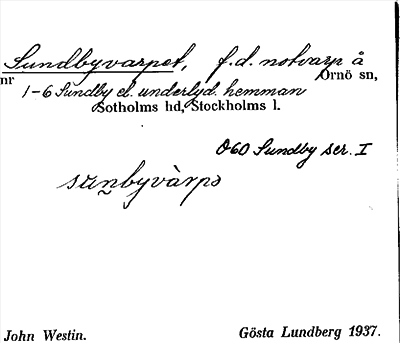 Sundbyvarpet, f.d. notvarp å
nr Ornö sn,
1-6 Sundby el. underlyd. hemman
Sotholms hd, Stockholms l.
060 Sundby ser. I
John Westin. Gösta Lundberg 1937.